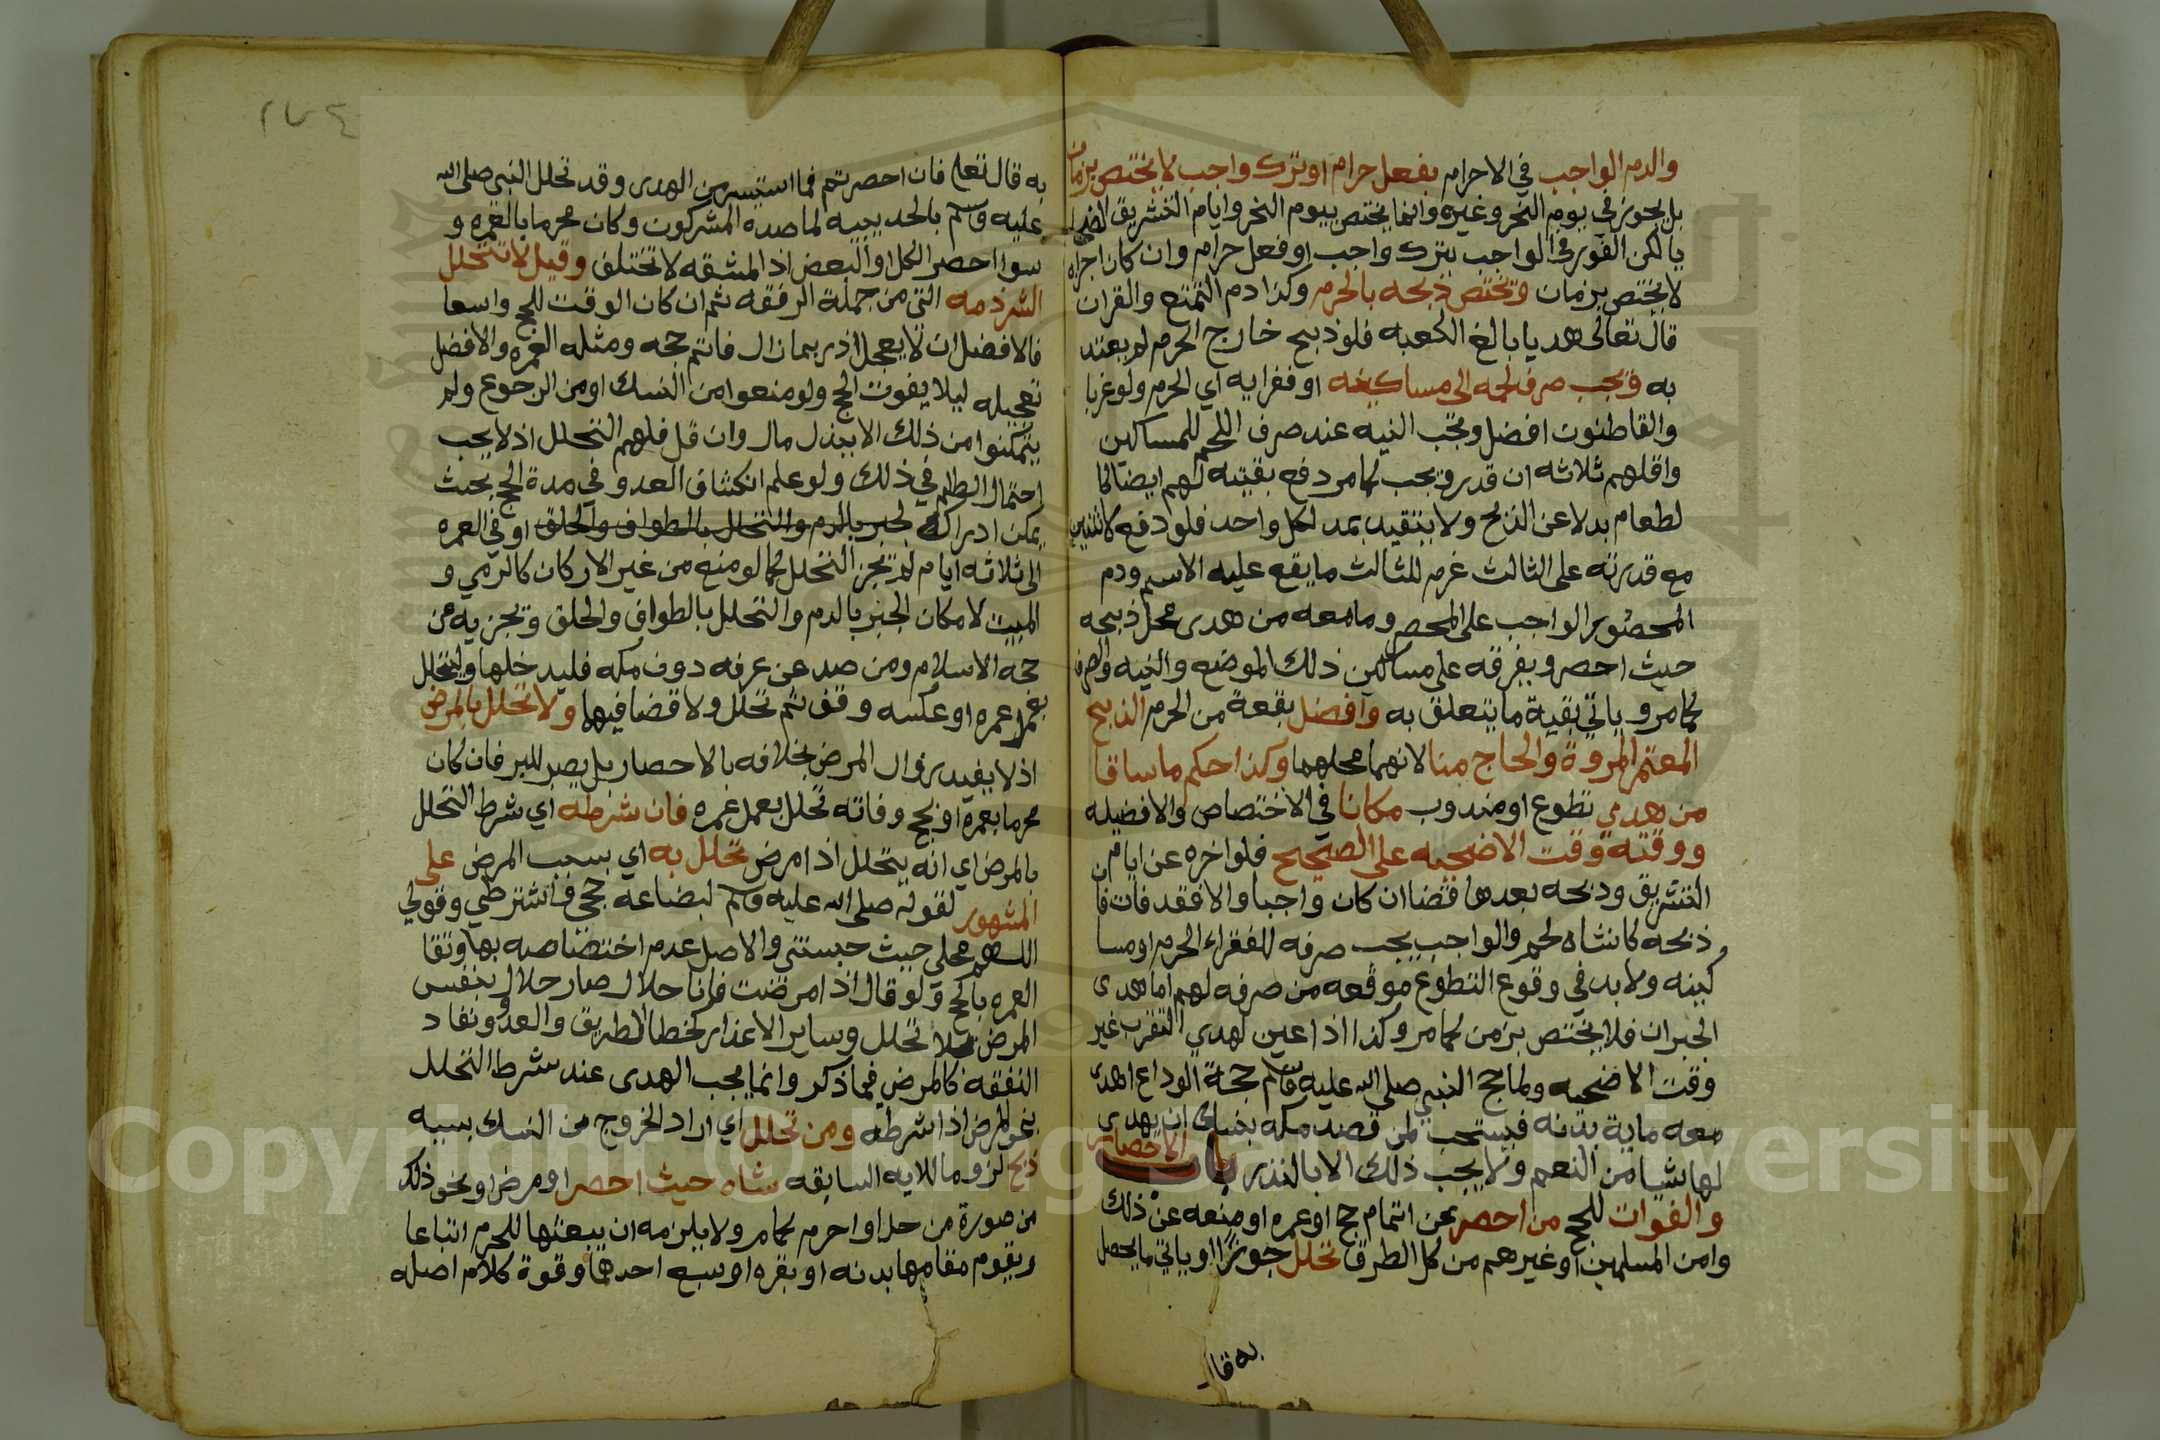 والدم الواجب في الاحرام بفعل حرام او ترك واجب لا يختص بزمان
بل يجوز في يوم النحر وغيره وانما يختص بيوم النحر وايام التشريق الضحا
يا لكن الفور في الواجب بترك واجب او فعل حرام وان كان اجزاه
لا يختص بزمان ويختص ذبحه بالحرم وكذا دم التمتع والقران
قال تعالى هديا بالغ الكعبه فلو ذبح خارج الحرم لم يعتد
به ويجب صرف لحمه الى مساكينه او فقرايه اي الحرم ولو غربا
والقاطنون افضل وتجب النيه عند صرف اللحم للمساكين
واقلهم ثلاثه ان قدر ويجب كما مر دفع بقيته لهم ايضا كا
لطعام بدلا عن الذبح ولا يتقيد بمد لكل واحد فلو دفع لاثنين
مع قدرته على الثالث غرم للثالث ما يقع عليه الاسم ودم
المحصور الواجب على المحصر وما معه من هدى محل ذبحه
حيث احصر ويفرقه على مساكين ذلك الموضع والنيه والصرف
كما مر وياتي بقية ما يتعلق به وافضل بقعة من الحرم الذبح
المعتمر المروة والحاج منا لانهما محلهما وكذا حكم ما ساقا
من هدي تطوع او مندوب مكانا في الاختصاص والافضليه
ووقته وقت الاضحيه على الصحيح فلو اخره عن ايام
التشريق وذبحه بعدها قضا ان كان واجبا والا فقد فات فا
ذبحه كانت شاه لحم والواجب يجب صرفه للفقراء الحرم او مسا
كينه ولا بد في وقوع التطوع موقعه من صرفه لهم اما هدى
الجبران فلا يختص بزمن كما مر وكذا اذا عين لهدي التقرب غير
وقت الاضحيه ولما حج النبي صلى الله عليه وسلم حجة الوداع اهدى
معه ماية بدنه فيستحب لمن قصد مكه بنسك ان يهدى
لها شيا من النعم ولا يجب ذلك الا بالنذر باب الاحصار
والفوات للحج من احصر عن اتمام حج او عمره او منعه عن ذلك
وامن المسلمين او غيرهم من كل الطرق تحلل جوازا او ياتي ما يحصل
به قا
٢٧٤
به قال تعلى فان احصرتم فما استيسر من الهدى وقد تحلل النبي صلى الله
عليه وسلم بالحديبيه لما صده المشركون وكان محرما بالعمره و
سوا احصر الكل او البعض اذ المشقه لا تختلف وقيل لا تتحلل
الشرذمه التى من جملة الرفقه ثم ان كان الوقت للحج واسعا
فالافضل ان لا يعجل اذ ربما زال فاتم حجه ومثله العمره والافضل
تعجيله ليلا يفوت الحج ولو منعوا من النسك او من الرجوع ولم
يتمكنوا من ذلك الا ببذل مال وان قل فلهم التحلل اذ لا يجب
احتمال الظلم في ذلك ولو علم انكشاف العدو في مدة الحج بحيث
يمكن ادراكه لجبر بالدم والتحلل بالطواف والحلق او في العمره
الى ثلاثه ايام لم يجز التحلل كما لو منع من غير الاركان كالرمي و
المبيت لامكان الجبر بالدم والتحلل بالطواف والحلق وتجزيه عن
حجة الاسلام ومن صد عن عرفه دون مكه فليدخلها وليتحلل
بعمل عمره او عكسه وقف ثم تحلل ولا قضا فيهما ولا تحلل بالمرض
اذ لا يفيد زوال المرض بخلافه بالاحصار بل يصبر للبرء فان كان
محرما بعمره او بحج وفاته تحلل بعمل عمره فان شرطه اي شرط التحلل
بالمرض اي انه يتحلل اذا مرض تحلل به اي بسبب المرض على
المشهور لقوله صلى الله عليه وسلم لبضاعه حجي فاشترطي وقولي
اللهم محلي حيث حبستني والاصل عدم اختصاصه بها وتقا
العمره بالحج ولو قال اذا مرضت فانا حلال صار حلال بنفس
المرض بلا تحلل وساير الاعذار كخطا الطريق والعدو ونفاد
النفقه كالمرض فيما ذكر وانما يجب الهدى عند شرط التحلل
بنحو المرض اذا شرطه ومن تحلل اي اراد الخروج من النسك بسببه
ذبح لزوما للايه السابقه شاه حيث احصر او مرض او نحو ذلك
من صورة من حل او احرم كما مر ولا يلزمه ان يبعثها للحرم اتباعا
ويقوم مقامها بدنه او بقره او سبع احدها وقوة كلام اصله
Copyright © King Saud University